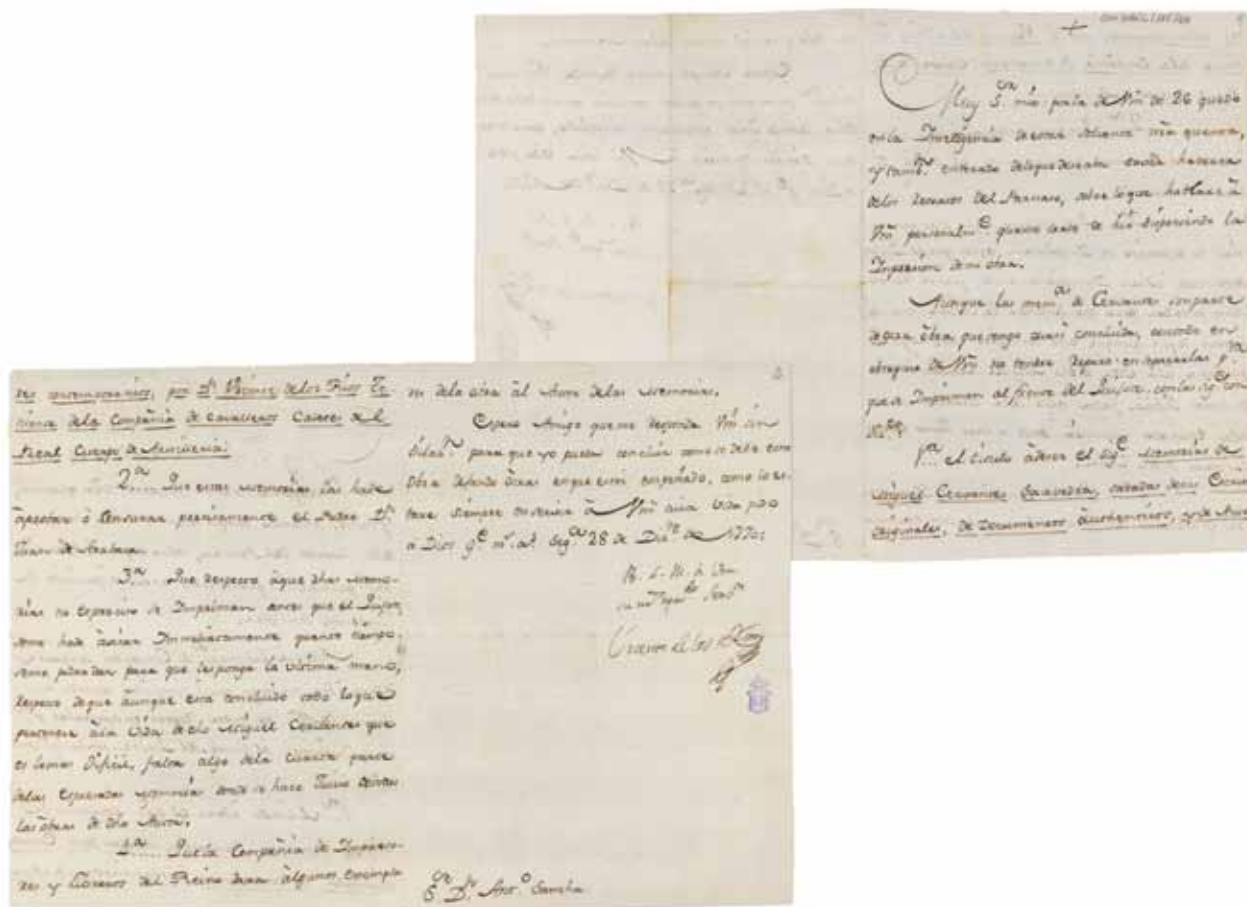 Muy S.or mio por la de Vm de 26 quedo
en la Inteligencia de estar
y tamb.n enterado de lo que
de los del Parnaso, sobre lo que hablaré à
Vm personalm.e
Impresion de mi obra.
Aunque las mem.as de Cervantes son parte
de otra obra que tengo quasi concluida,
obsequio de Vm no tendre reparo en separarlas p.a
que se Impriman al frente del Quijote, con las sig.tes con
1.a el titulo à de ser el sig.e Memorias de
Miguel Cervantes Saavedra, sacadas de sus
originales, de Documentos àuthenticos, y de Auto
res contemporaneos, por D.n Vicente de los Rios Te
niente de la Compañia de Cavalleros Cadetes de el
Real Cuerpo de Artilleria:
2.a Que estas memorias, las hade
aprobar ò Censurar precisamente el Padre D.n
Juan de Aravaca.
3.a Que respecto àque dhas memo-
rias no es preciso se Impriman antes que el Quijote
seme hade àvisar Immediatamente quanto tiempo
seme puede dar para que les ponga la ultima mano,
respecto deque àunque esta concluido todo loque
pertenece àla Vida de dho Miguel Cervantes que
es lo mas dificil, falta algo dela quarta parte
delas Expresadas memorias donde se hace Juicio de todas
las obras de dho Autor.
4.a Que la Compañia de Impreso-
res y Libreros del Reino dara àlgunos exempla
res dela obra àl Autor delas memorias.
Espero Amigo que me responda Vm sin
dilac.n para que yo pueda concluir como se debe esta
Obra dejando otras en que estoi empeñado, como lo es-
tare siempre en servir à Vm cuia Vida pido
à Dios g.e m.s a.s Seg.a 28 de Di.re de 1770:
B. L. M. de Vm
su
Vicente de los Rios
S.or D.n Ant.o Sancha